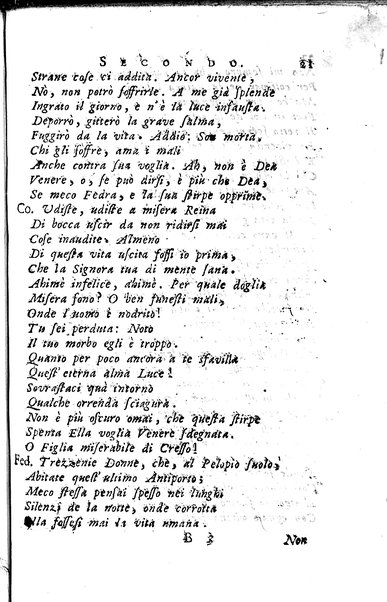 SECONDO. 21
Strane cose ci addita. Ancor vivente,
Nò, non potrò soffrirle. A me già splende
Ingrato il giorno, e n'è la luce infausta.
Deporrò, gitterò la grave salma,
Fuggirò da la vita. Addio; Son morta.
Chi gli soffre, ama i mali
Anche contra sua voglia. Ah, non è Dea
Venere, o, se può dirsi, è più che Dea,
Se meco Fedra, e la sua stirpe opprime.
Co. Udiste, udiste a misera Reina
Di bocca uscir da non ridirsi mai
Cose inaudite. Almeno
Di questa vita uscita fossi io prima,
Che la Signora tua di mente sana.
Ahimè infelice, ahimè. Per quale doglia
Misera sono? O ben funesti mali,
Onde l'uomo è nodrito!
Tu sei perduta: Noto
Il tuo morbo egli è troppo.
Quanto per poco ancora a te sfavilla
Quest' eterna alma Luce!
Sovrastaci quà intorno
Qualche orrenda sciagura.
Non è più oscuro omai, che questa stirpe
Spenta Ella voglia Venere sdegnata.
O Figlia miserabile di Cresso!
Fed. Trezzenie Donne, che, al Pelopio suolo,
Abitate quest' ultimo Antiporto;
Meco stessa pensai spesso nei lunghi
Silenzi de la notte, onde corrotta
lla fossesi mai la vita umana.
B 3 Non